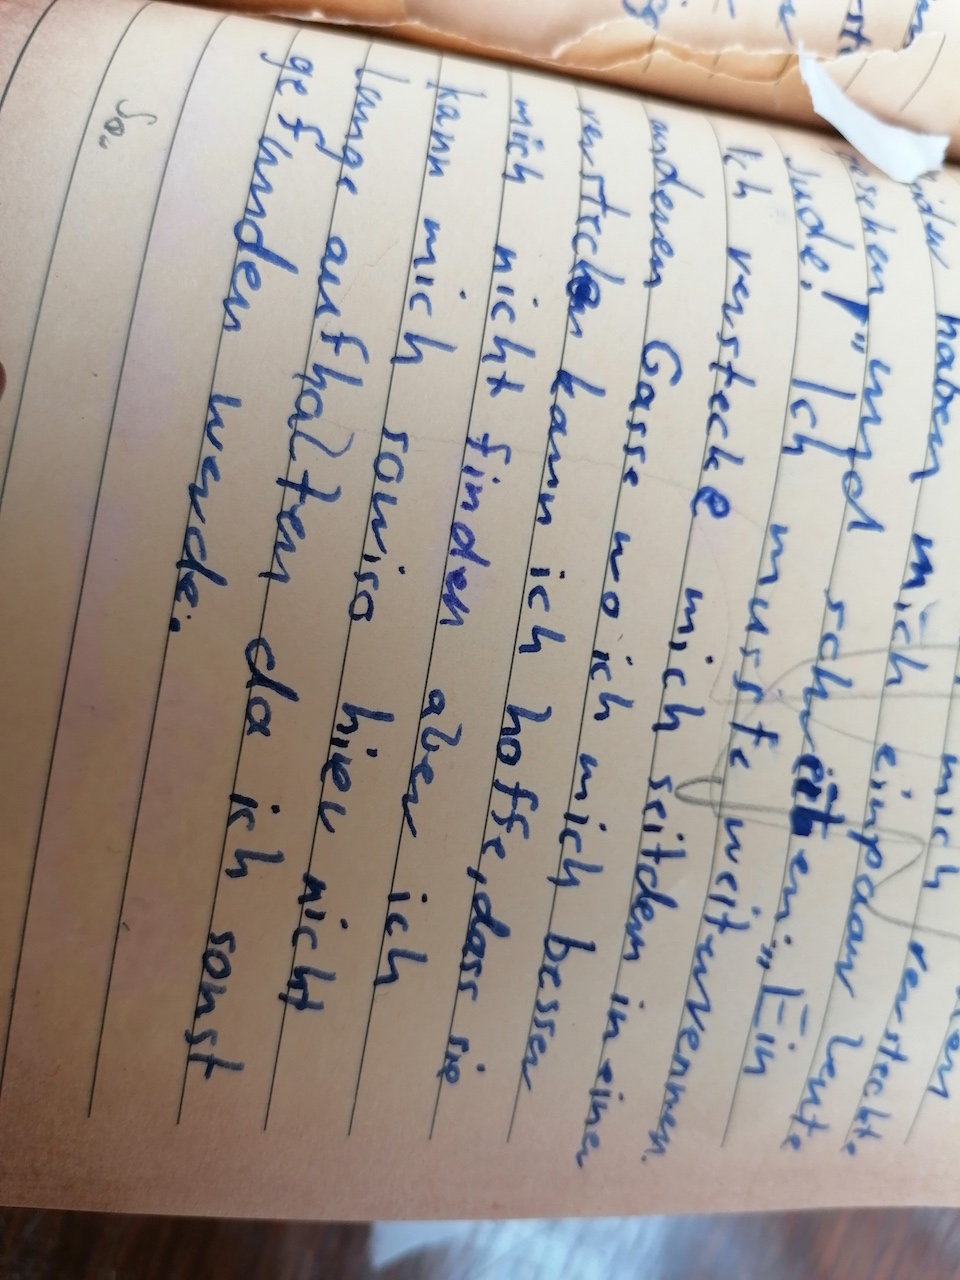 mich versteckte
haben mich einpaar Leute
und schrieten: „Ein
Jude!" Ich musste weiterrennen.
Ich verstecke mich seitdem in einer
anderen Gasse wo ich mich besser
verstecken kann ich hoffe, dass sie
mich nicht finden aber ich
kann mich sowiso hier nicht
lange aufhalten da ich sonst
gefunden werde.